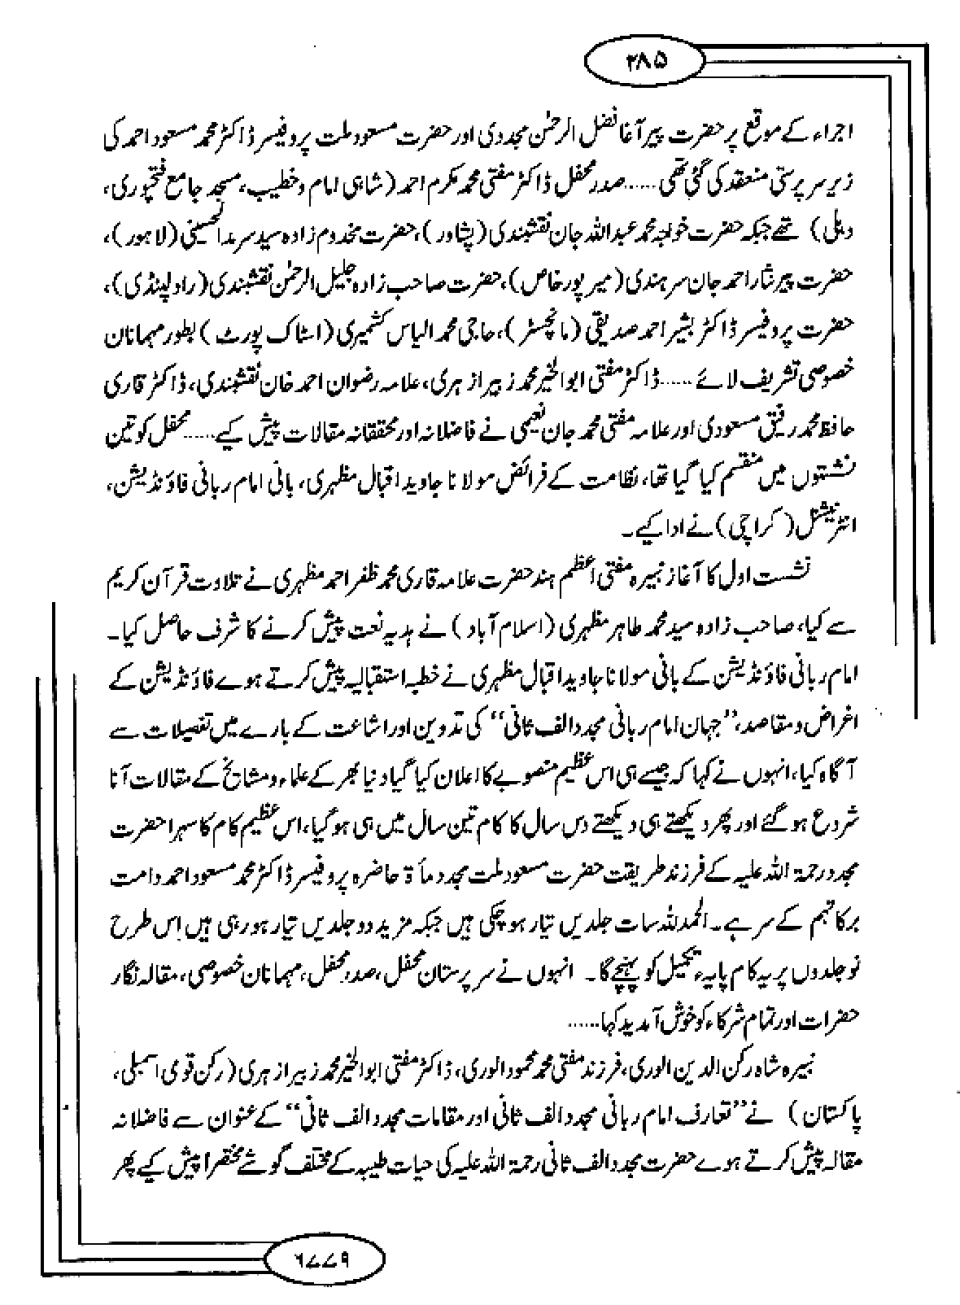 ۲۸۵
اجراء کے موقع پر حضرت پیر آغا فضل الرحمٰن مجددی اور حضرت مسعود ملت پروفیسر ڈاکٹر محمد مسعود احمد کی
زیر سرپرستی منعقد کی گئی تھی ...... صدر محفل ڈاکٹر مفتی محمد مکرم احمد (شاہی امام و خطیب، مسجد جامع فتحپوری،
دہلی) تھے جبکہ حضرت خواجہ محمد عبداللہ جان نقشبندی (پشاور)، حضرت مخدوم زادہ سید سرمد الحسینی (لاہور)،
حضرت پیر نثار احمد جان سرہندی (میرپور خاص)، حضرت صاحب زادہ جلیل الرحمٰن نقشبندی (راولپنڈی)،
حضرت پروفیسر ڈاکٹر بشیر احمد صدیقی (مانچسٹر)، حاجی محمد الیاس کشمیری (اسٹاک پورٹ) بطور مہمانان
خصوصی تشریف لائے ...... ڈاکٹر مفتی ابوالخیر محمد زبیر ازہری، علامہ رضوان احمد خان نقشبندی، ڈاکٹر قاری
حافظ محمد رفیق مسعودی اور علامہ مفتی محمد جان نعیمی نے فاضلانہ اور محققانہ مقالات پیش کیے ...... محفل کو تین
نشستوں میں منقسم کیا گیا تھا، نظامت کے فرائض مولانا جاوید اقبال مظہری، بانی امام ربانی فاؤنڈیشن،
انٹرنیشنل (کراچی) نے ادا کیے۔
نشست اول کا آغاز نبیرہ مفتی اعظم ہند حضرت علامہ قاری محمد ظفر احمد مظہری نے تلاوت قرآن کریم
سے کیا، صاحب زادہ سید محمد طاہر مظہری (اسلام آباد) نے ہدیہ نعت پیش کرنے کا شرف حاصل کیا۔
امام ربانی فاؤنڈیشن کے بانی مولانا جاوید اقبال مظہری نے خطبہ استقبالیہ پیش کرتے ہوے فاؤنڈیشن کے
اغراض و مقاصد، ’’جہان امام ربانی مجدد الف ثانی‘‘ کی تدوین اور اشاعت کے بارے میں تفصیلات سے
آگاہ کیا، انہوں نے کہا کہ جیسے ہی اس عظیم منصوبے کا اعلان کیا گیا دنیا بھر کے علماء و مشائخ کے مقالات آنا
شروع ہو گئے اور پھر دیکھتے ہی دیکھتے دس سال کا کام تین سال میں ہی ہو گیا، اس عظیم کام کا سہرا حضرت
مجدد رحمۃ اللہ علیہ کے فرزند طریقت حضرت مسعود ملت مجدد مأۃ حاضرہ پروفیسر ڈاکٹر محمد مسعود احمد دامت
برکاتہم کے سر ہے۔ الحمدللہ سات جلدیں تیار ہو چکی ہیں جبکہ مزید دو جلدیں تیار ہو رہی ہیں اس طرح
نو جلدوں پر یہ کام پایۂ تکمیل کو پہنچے گا۔ انہوں نے سرپرستان محفل، صدر محفل، مہمانان خصوصی، مقالہ نگار
حضرات اور تمام شرکاء کو خوش آمدید کہا ......
نبیرہ شاہ رکن الدین الوری، فرزند مفتی محمد محمود الوری، ڈاکٹر مفتی ابوالخیر محمد زبیر ازہری (رکن قومی اسمبلی،
پاکستان) نے ’’تعارف امام ربانی مجدد الف ثانی اور مقامات مجدد الف ثانی‘‘ کے عنوان سے فاضلانہ
مقالہ پیش کرتے ہوے حضرت مجدد الف ثانی رحمۃ اللہ علیہ کی حیات طیبہ کے مختلف گوشے مختصراً پیش کیے پھر
۶۷۷۹